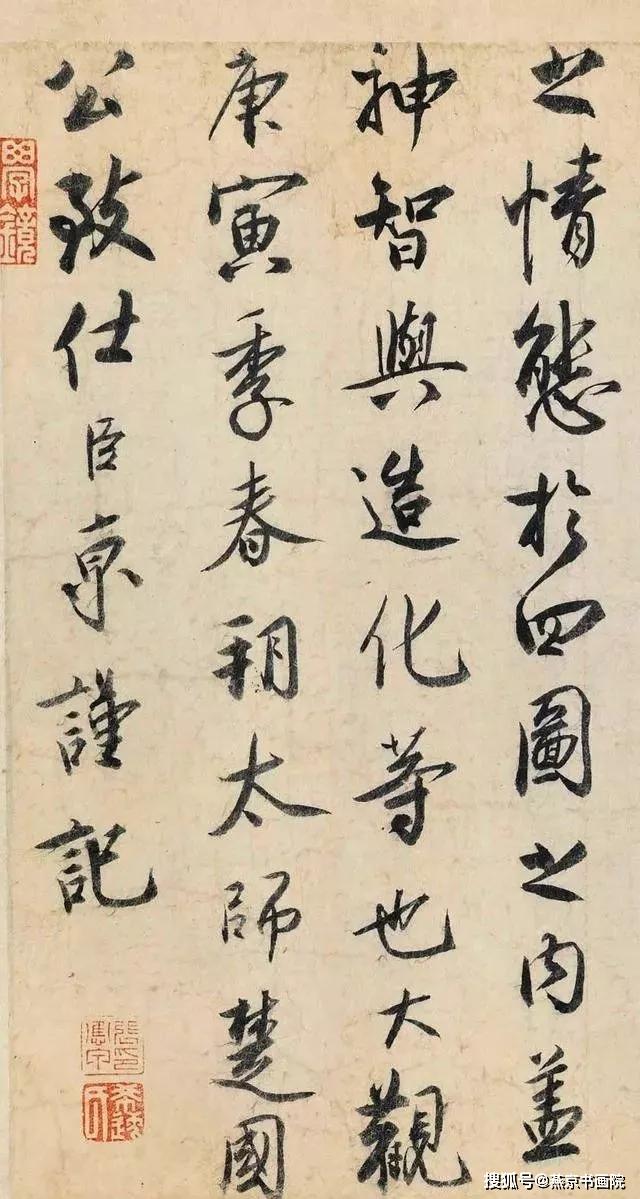 之情態於四圖之內蓋
神智與造化等也大觀
庚寅季春朔太師楚國
公致仕臣京謹記
搜狐号@燕京书画院